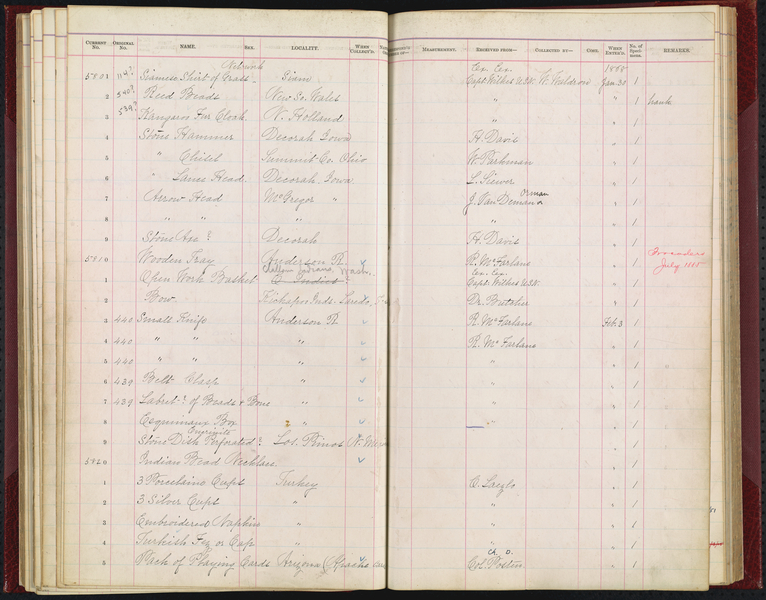 CURRENT No. ORIGINAL No. NAME. SEX. LOCALITY. WHEN COLLECT'D. MEASUREMENT. RECEIVED FROM— COLLECTED BY— COST. WHEN ENTER'D. No. of Specimens. REMARKS.
Network Ex. Ex. 1868
5801 Siamese Shirt of Grass Siam Capt. Wilkes U.S.N. W. Waldron Jan. 30 1
2 Reed Beads New So. Wales " " 1
3 Kangaroo Fur Cloak N. Holland " " 1
4 Stone Hammer Decorah Iowa H. Davis " 1
5 " Chisel Summit Co. Ohio W. Parkman " 1
6 " Lance Head. Decorah, Iowa " 1
7 Arrow Head McGregor " J. Van " 1
8 " " " " " 1
9 Stone Axe ? Decorah H. Davis " 1
5810 Wooden Tray Anderson R. R. McFarlane " 1 July, 1885
Ex. Ex.
1 Open Work Basket Wash. Capt. Wilkes U.S.N. " 1
2 Bow Kickapoo Inds. Laredo, Dr. " 1
3 440 Small Knife Anderson R. R. McFarlane Feb. 3 1
4 440 " " " R. McFarlane " 1
5 440 " " " " " 1
6 439 Belt Clasp " " " 1
7 439 Labret ? of Beads & Bone " " " 1
8 Esquimaux Box " " " 1
9 Stone Dish Perforated ? Los Pinos (N. Mex " 1
5820 Indian Bead Necklace " 1
1 3 Porcelain Cups Turkey " 1
2 3 Silver Cups " " " 1
3 Embroidered Napkin " " " 1
4 Turkish Fez or Cap " " " 1
5 Pack of Playing Cards Arizona (Apache Col. Poston " 1